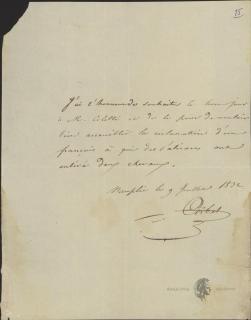 15
J'ai l'honneur de souhaiter le bon jour
à Mr. Colettis et de le prier de vouloir
bien accueillir la réclamation d'un
français à qui des
enlevé deux chevaux.
Nauplie le 9 Juillet 1832